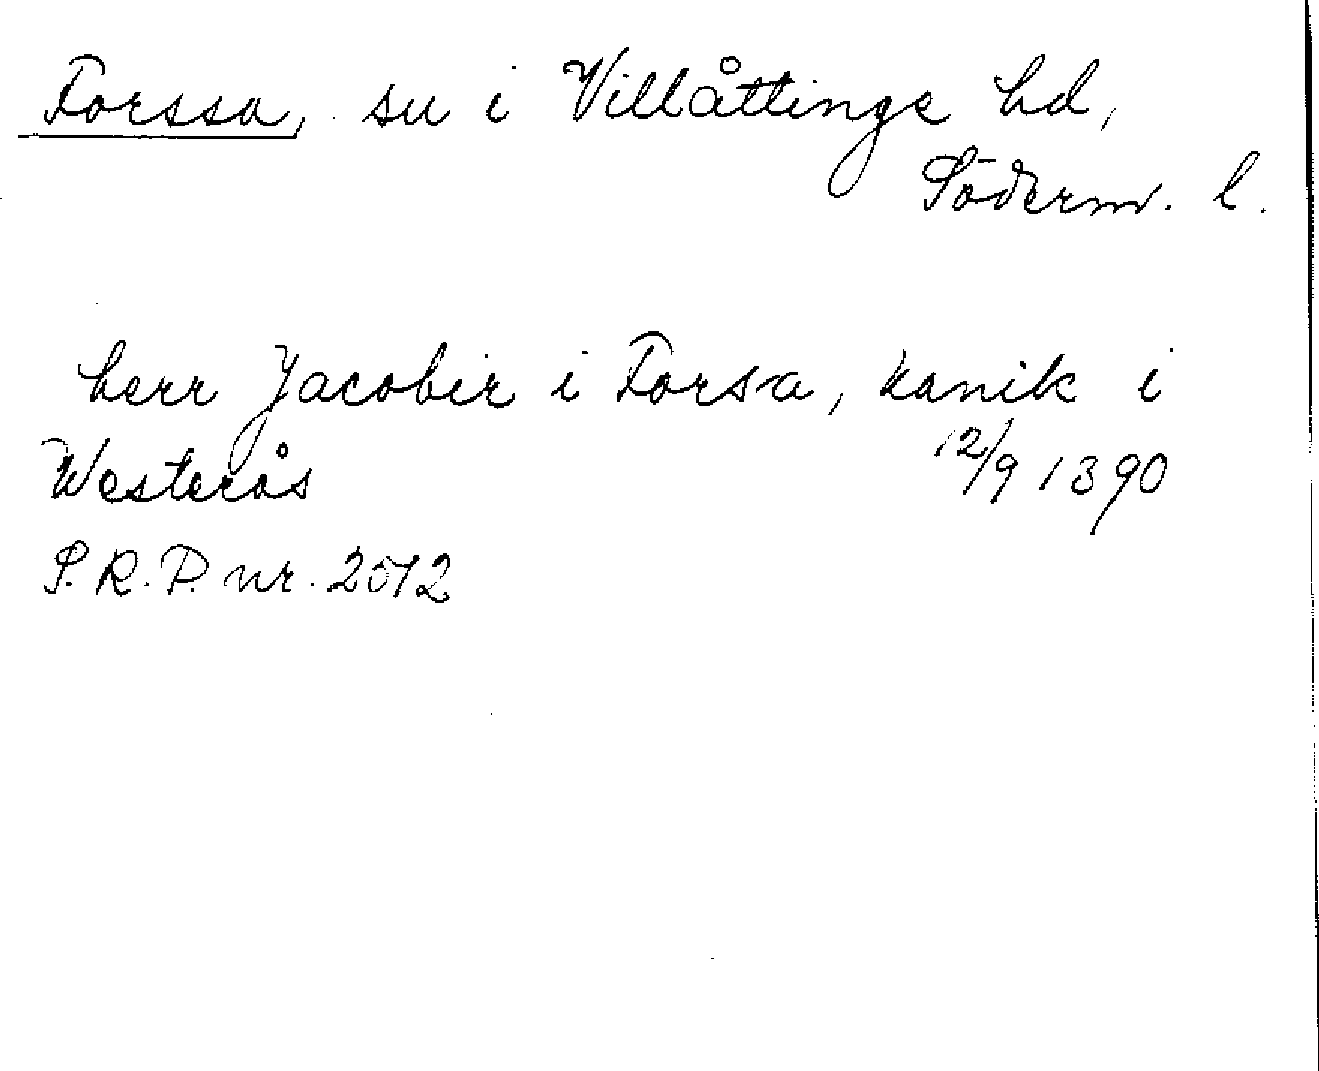 Forssa, su i Villåttinge hd,
Söderm. l.
herr Jacober i Forsa, kanik i
Westerås 12/9 1390
S.R.P. nr. 2572